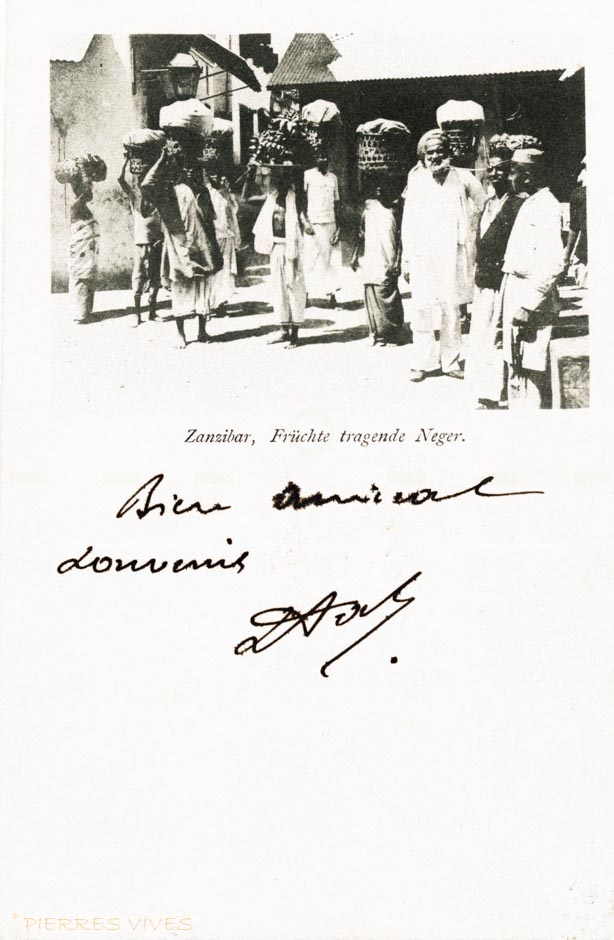 Zanzibar, Früchte tragende Neger.
Bien amical
souvenir
© PIERRES VIVES